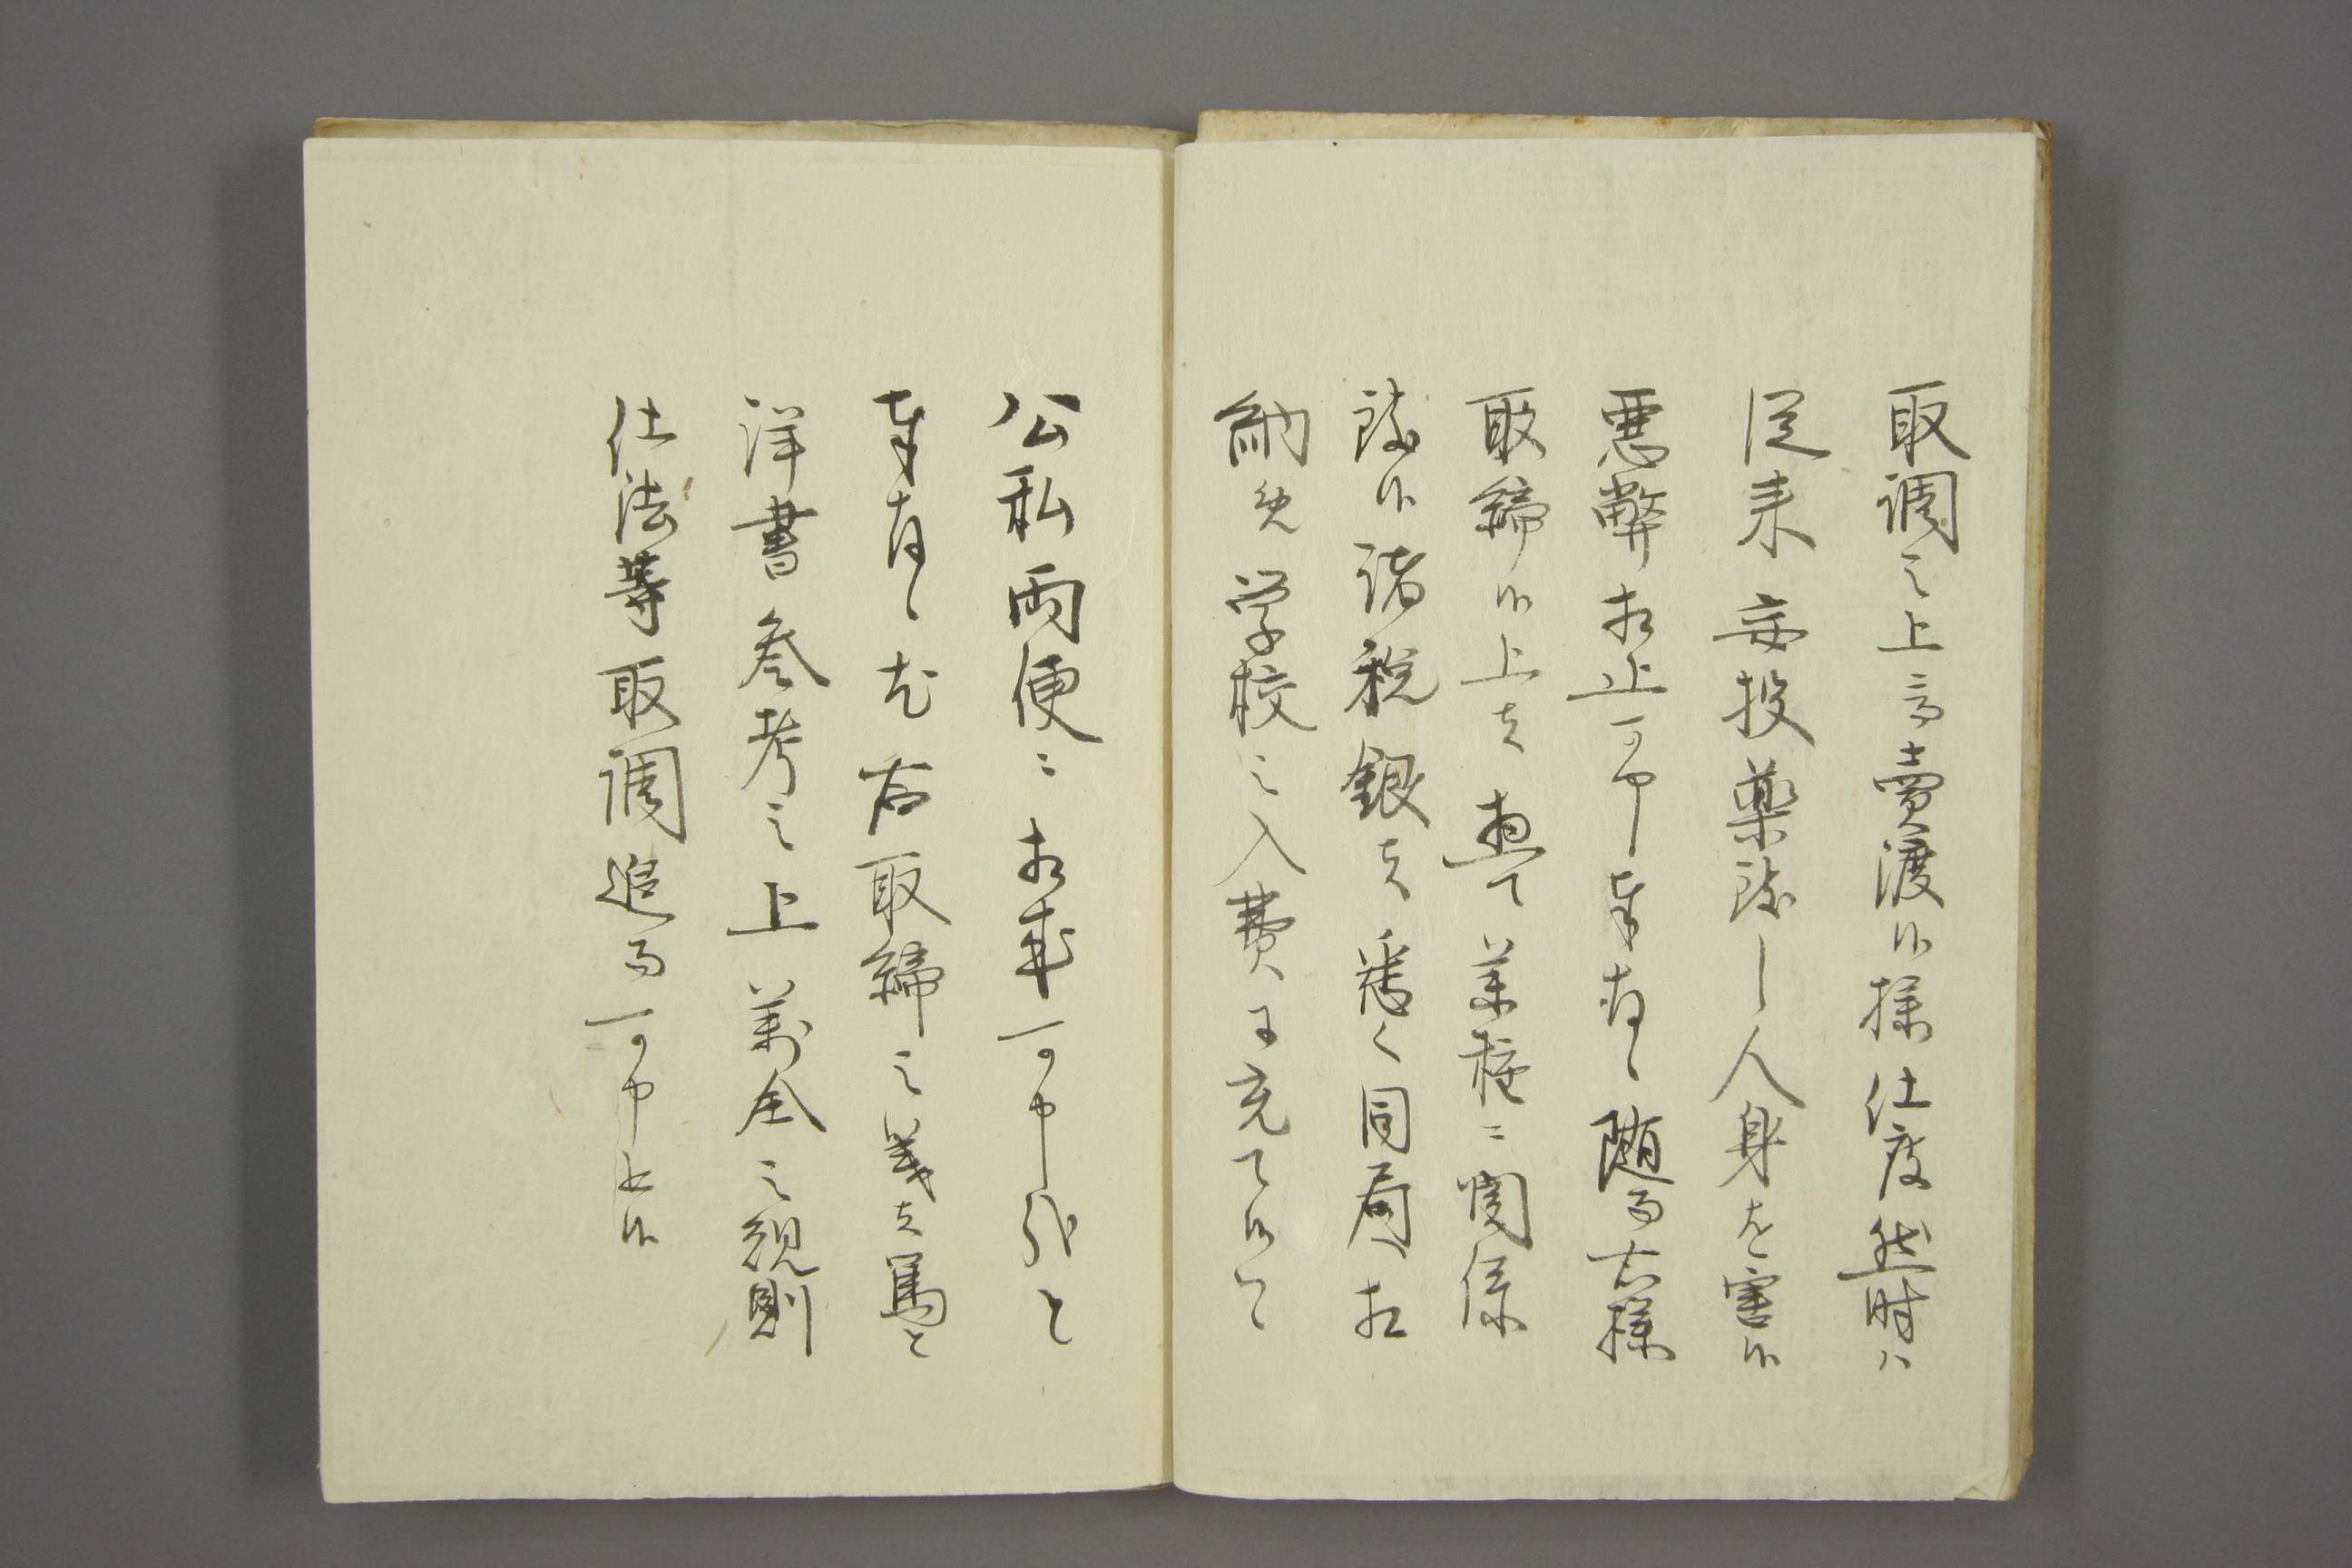 取調之上ニ而賣渡候様仕度然時ハ
従来妄投薬致し人身を害候
悪弊相止可申奉存候随而右様
取締候上者専て薬種ニ関係
致候諸税銀者悉く同局相
納め学校之入費ニ充て候て
公私両便ニ相成可申哉と
奉存候尤右取締之義者篤と
洋書参考之上萬全之規則
仕法等取調追而可申上候